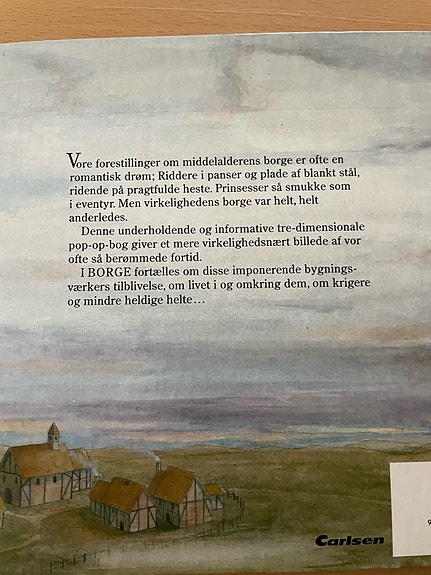 Vore forestillinger om middelalderens borge er ofte en
romantisk drøm; Riddere i panser og plade af blankt stål,
ridende på pragtfulde heste. Prinsesser så smukke som
i eventyr. Men virkelighedens borge var helt, helt
anderledes.
Denne underholdende og informative tre-dimensionale
pop-op-bog giver et mere virkelighedsnært billede af vor
ofte så berømmede fortid.
I BORGE fortælles om disse imponerende bygnings-
værkers tilblivelse, om livet i og omkring dem, om krigere
og mindre heldige helte...
Carlsen
9